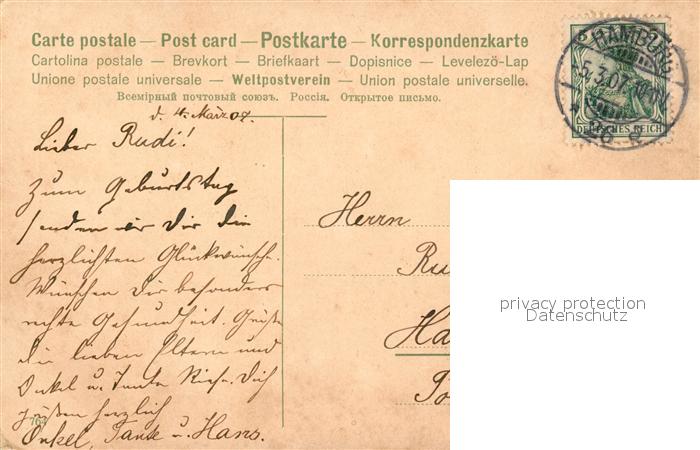 Carte postale — Post card — Postkarte — Korrespondenzkarte
Cartolina postale — Brevkort — Briefkaart — Dopisnice — Levelezö-Lap
Unione postale universale — Weltpostverein — Union postale universelle.
Всемірный почтовый союзъ. Россія. Открытое письмо.
HAMBURG
5.3.07
DEUTSCHES REICH
d. 4. März 07.
Lieber Rudi!
Zum Geburtstag
senden wir Dir die
herzlichsten Glückwünsche.
Wünschen Dir besonders
rechte Gesundheit. Grüße
die lieben Eltern und
Onkel u. Tante Dich
grüßen herzlich
Onkel, Tante u. Hans.
764
Herrn
Ru
Ha
privacy protection
Datenschutz